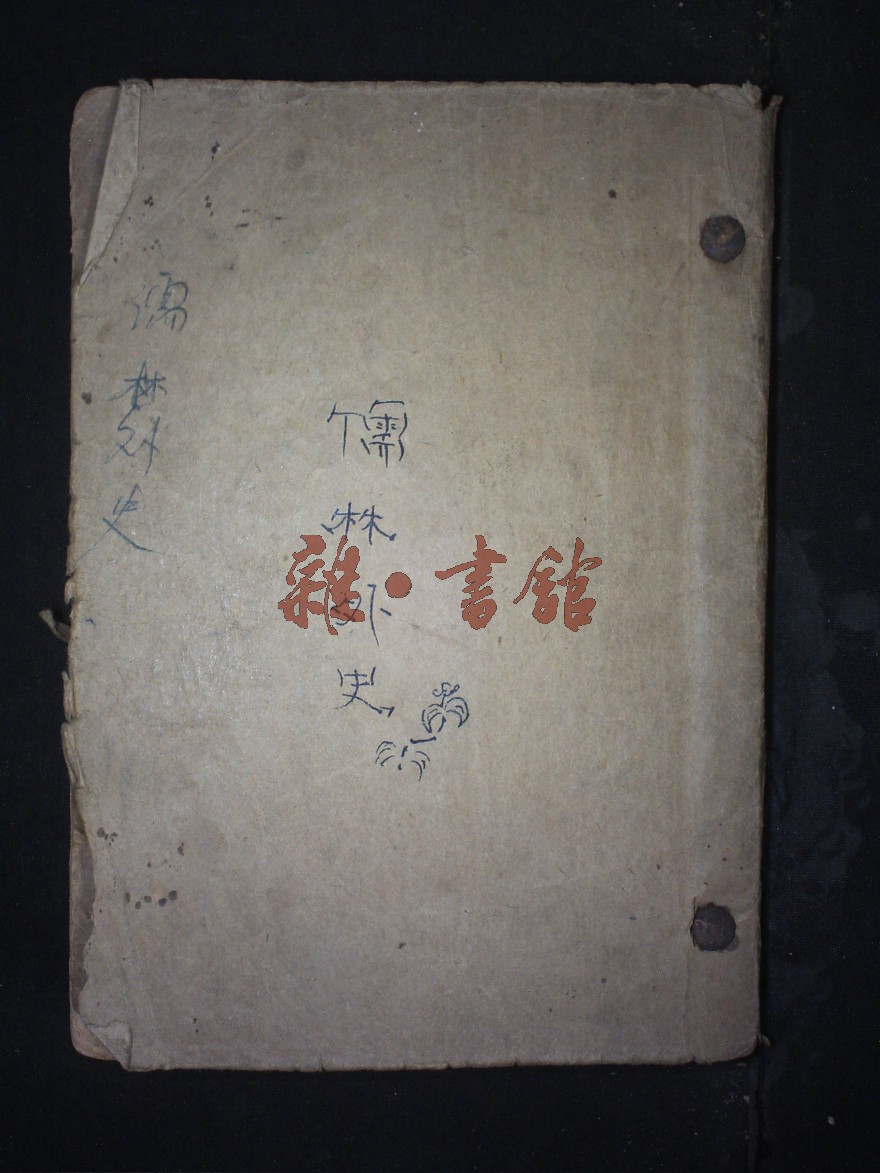 儒林外史
儒林外史
雜·書館